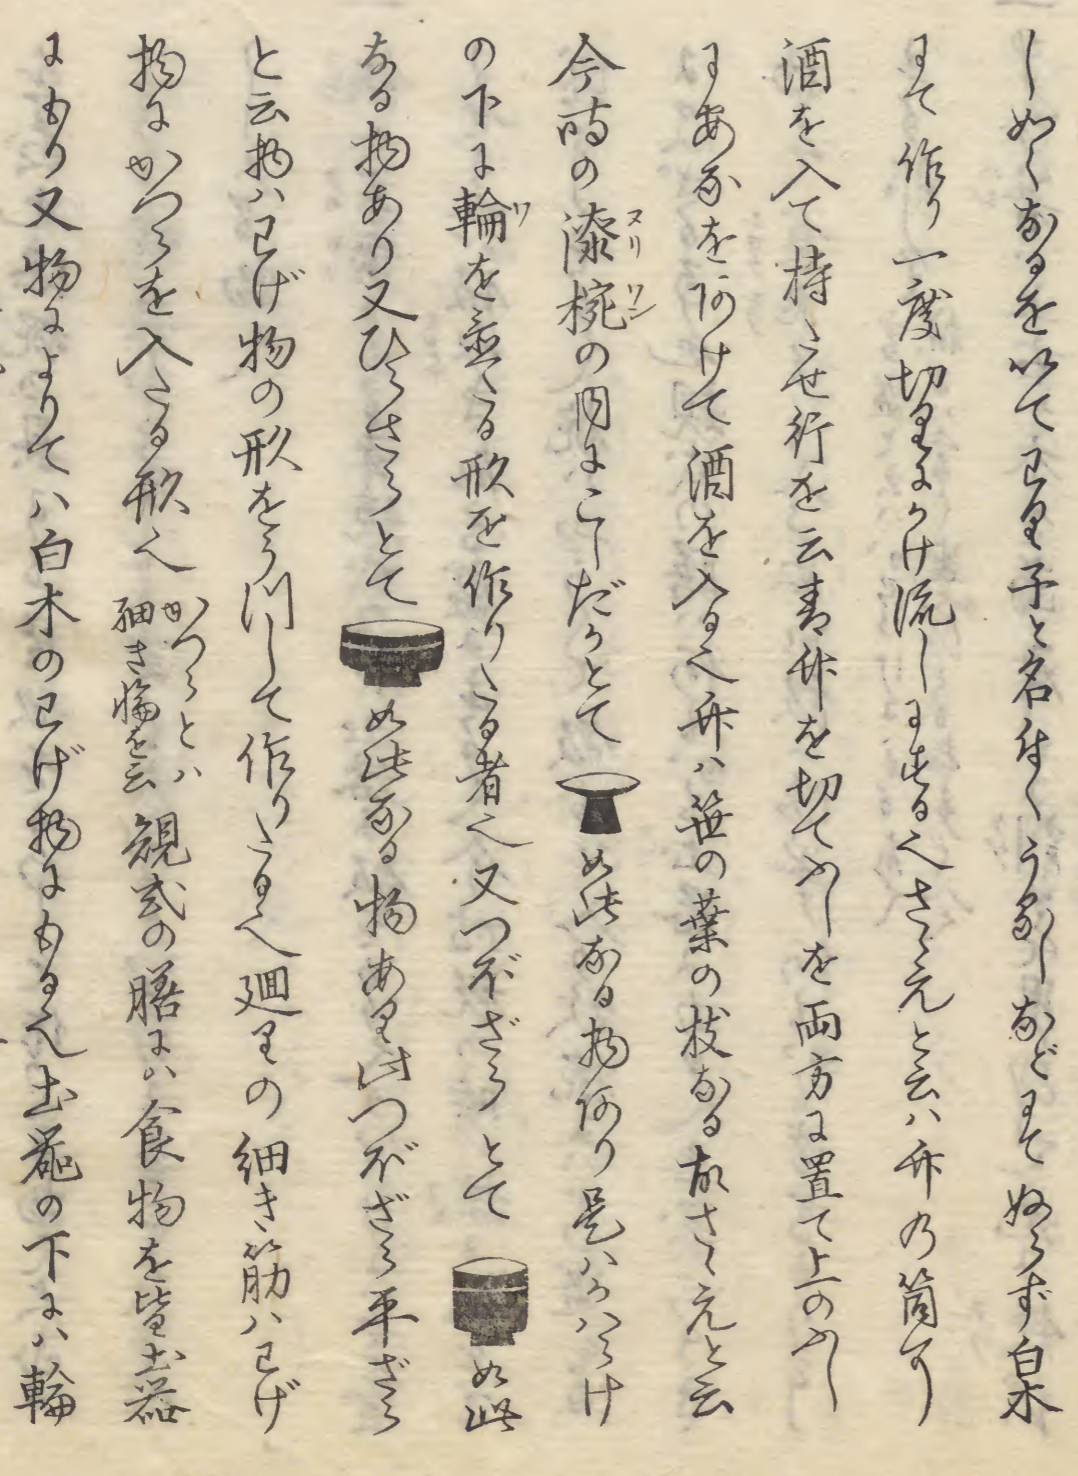 し如くなるを以てわり子と名付くうるしなどにてぬらず白木
にて作り一度切りにかけ流しにする也さゝえと云ハ竹の筒に
酒を入て持たせ行を云青竹を切てふしを両方に置て上のふし
にあなをあけて酒を入る也竹ハ笹の葉の枝なる故さゝえと云
今時の漆椀の内にこしだかとて如此なる物あり是ハかハらけ
ヌリワン
の下に輪を置たる形を作りたる者也又つぼざらとて如此
ワ
なる物あり又ひらさらとて如此なる物あり此つぼざら平ざら
と云物ハわげ物の形をうつして作りたる也廻りの細き筋ハわげ
物にかつらを入たる形也
かつらとハ
細き輪を云
規式の膳にハ食物を皆土器
にもり又物によりてハ白木のわげ物にもる也土器の下にハ輪